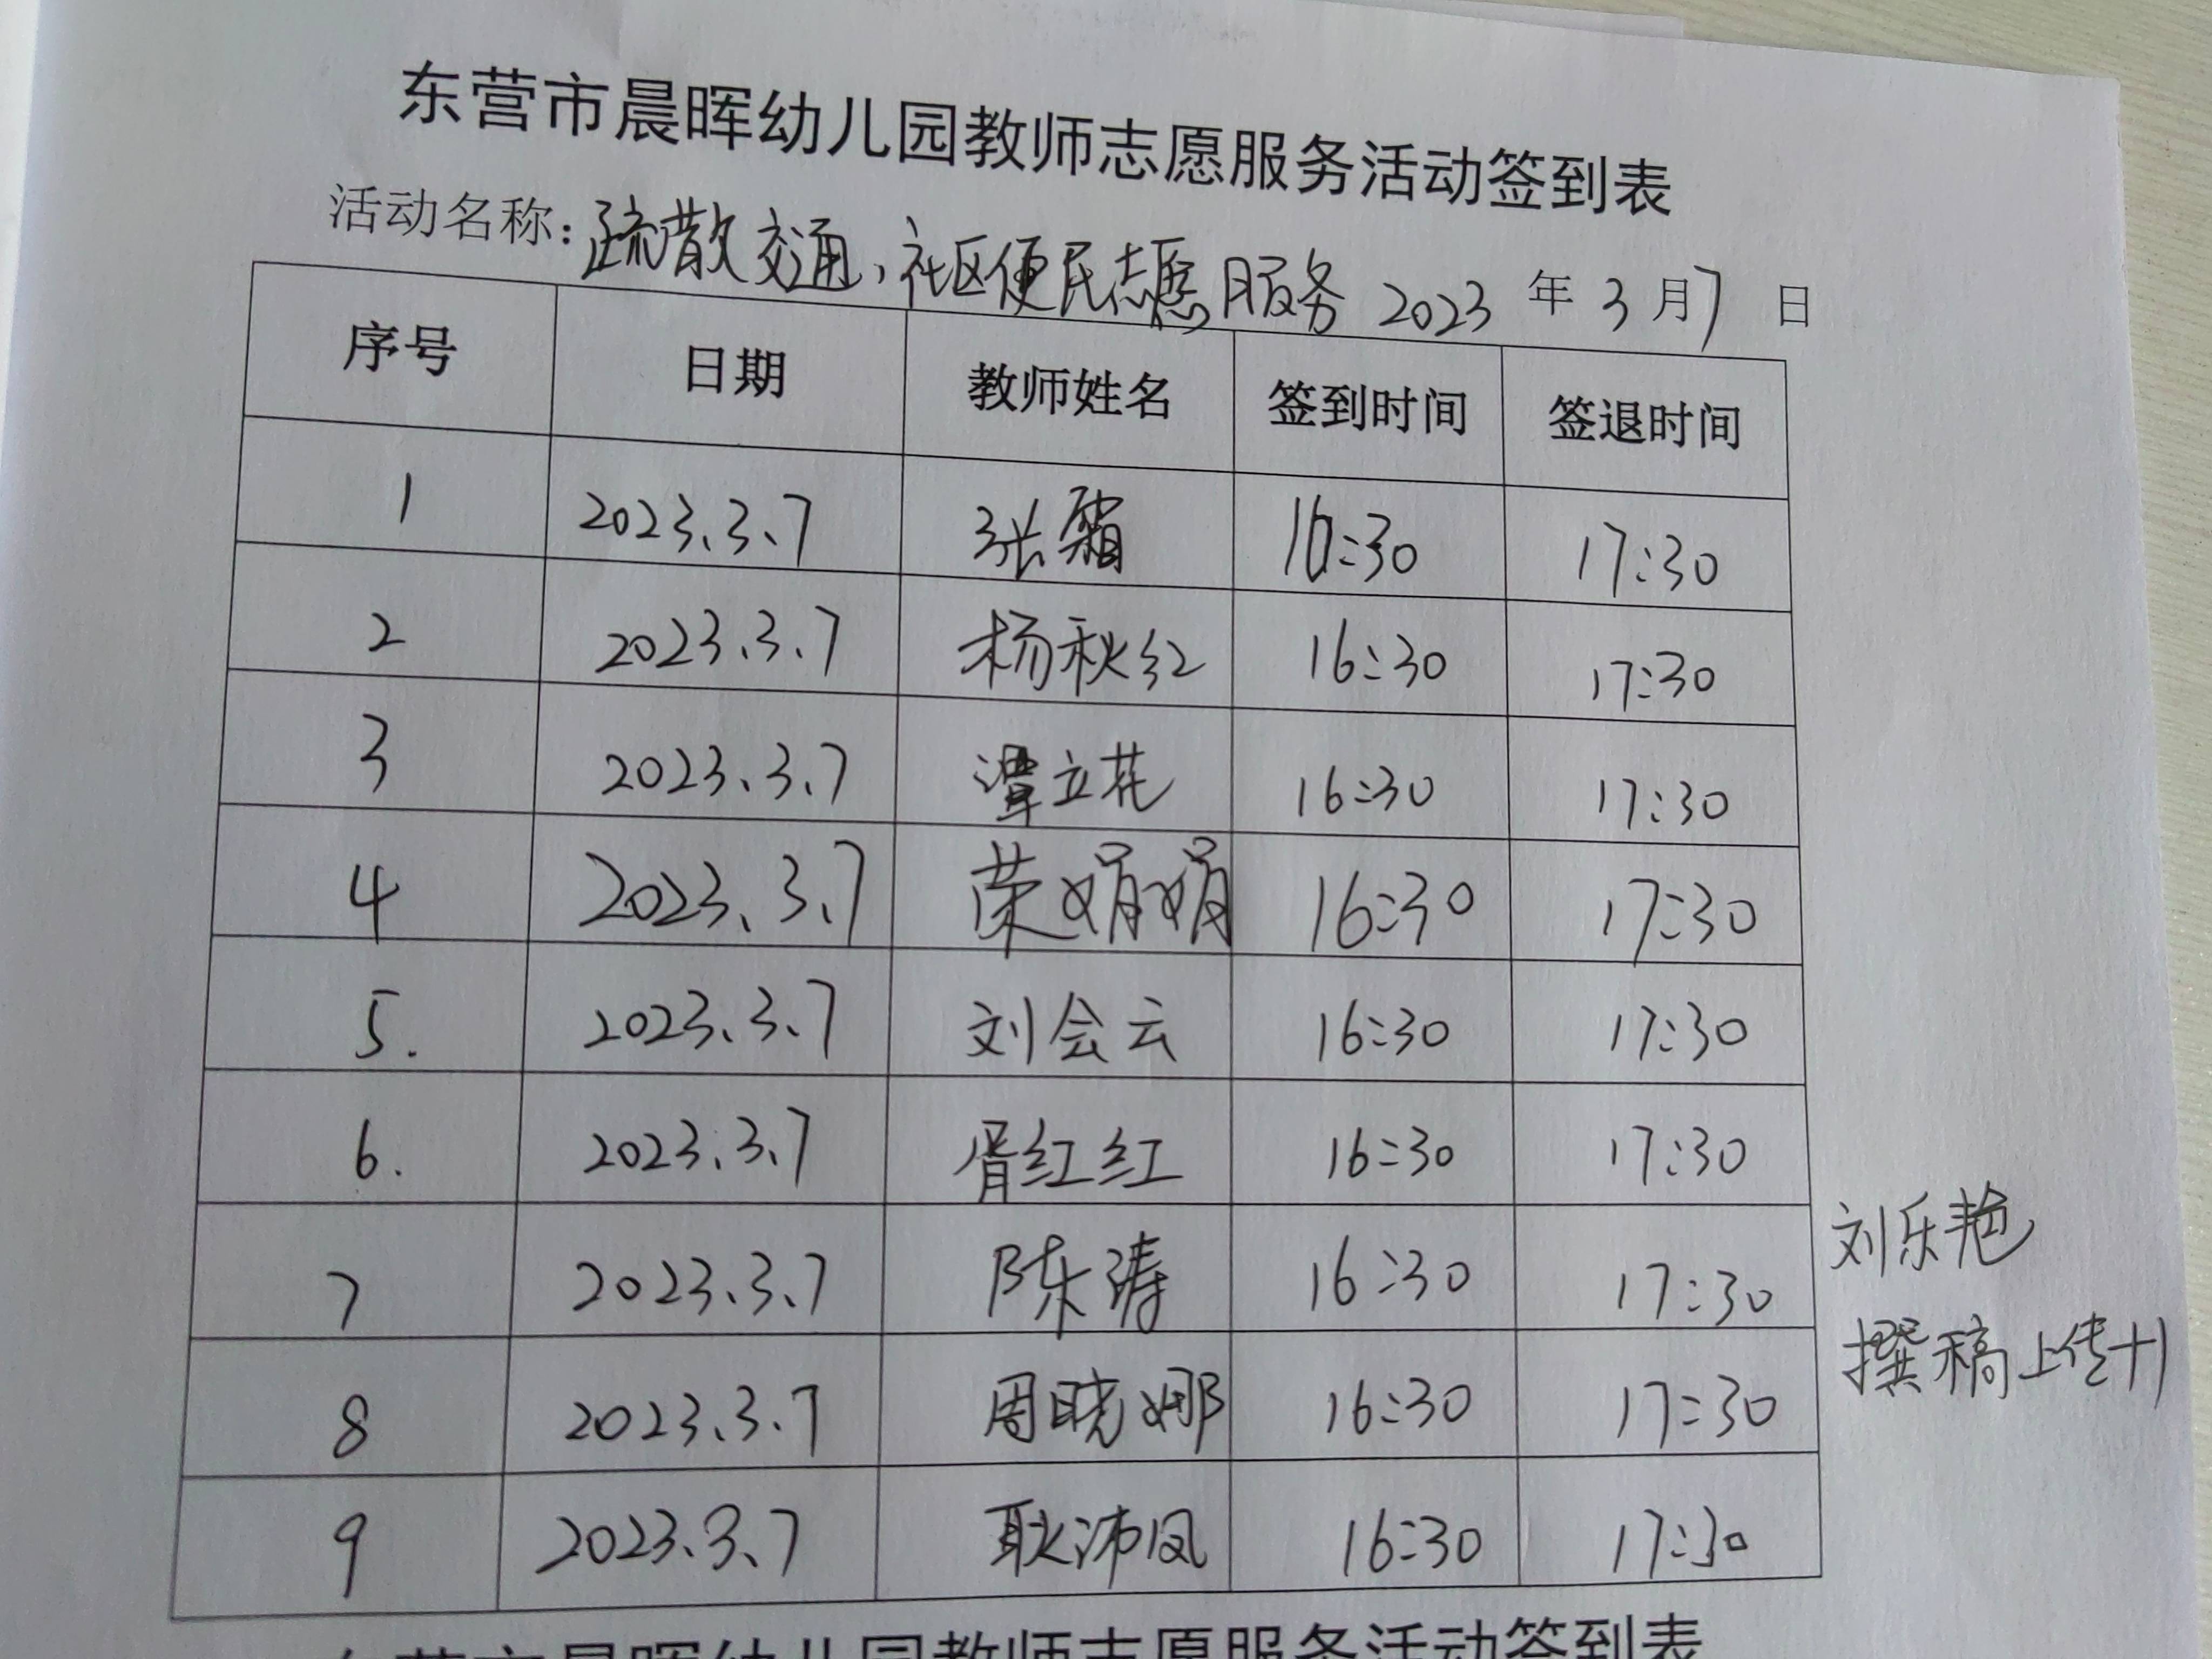 东营市晨晖幼儿园教师志愿服务活动签到表
活动名称：疏散交通，社区便民志愿服务 2023 年 3 月 7 日
序号 日期 教师姓名 签到时间 签退时间
1 2023、3、7 张霜 16:30 17:30
2 2023、3、7 杨秋红 16:30 17:30
3 2023、3、7 潭立花 16:30 17:30
4 2023、3、7 荣娟娟 16:30 17:30
5. 2023、3、7 刘会云 16:30 17:30
6. 2023、3、7 胥红红 16:30 17:30
7 2023、3、7 陈涛 16:30 17:30
8 2023、3、7 周晓娜 16:30 17:30
9 2023、3、7 耿沛凤 16:30 17:30
刘乐艳
撰稿上传+1
东营市晨晖幼儿园教师志愿服务活动签到表